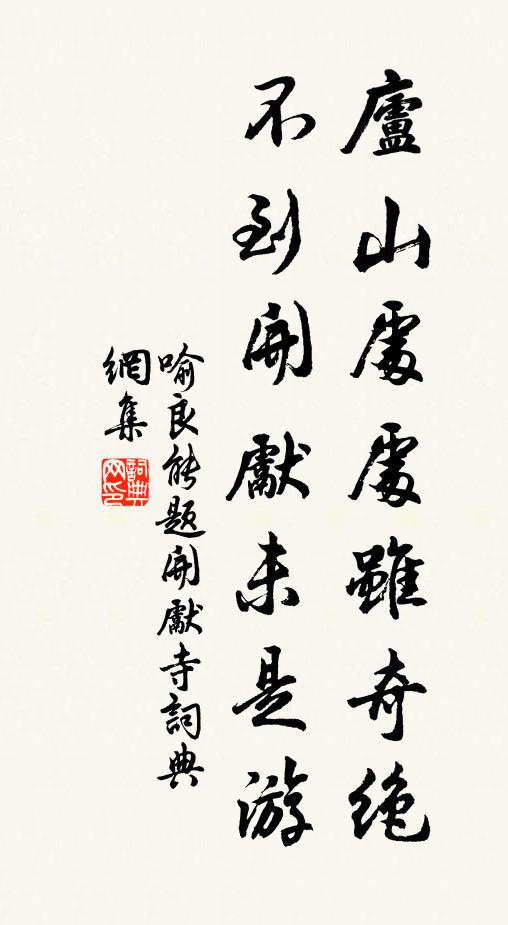 廬山處處雖奇絶
不到開獻未是游
喻良能題開獻寺詞典
網集
詞典網印